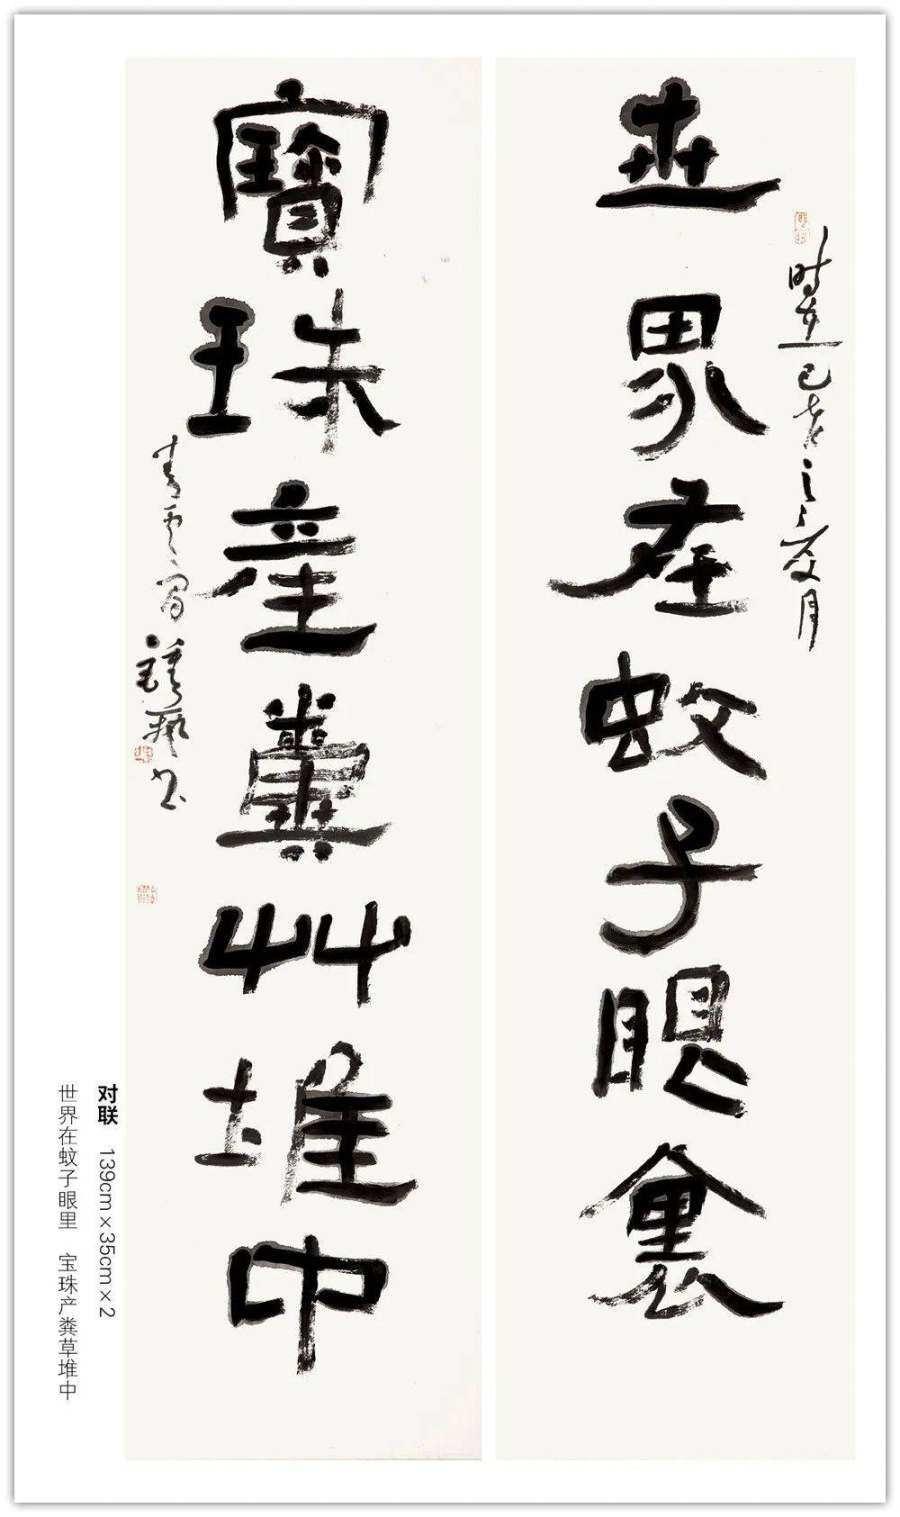 世界在蚊子眼裏
时在己亥之夏月
寶珠產糞艸堆中
对联 139cm×35cm×2
世界在蚊子眼里 宝珠产粪草堆中